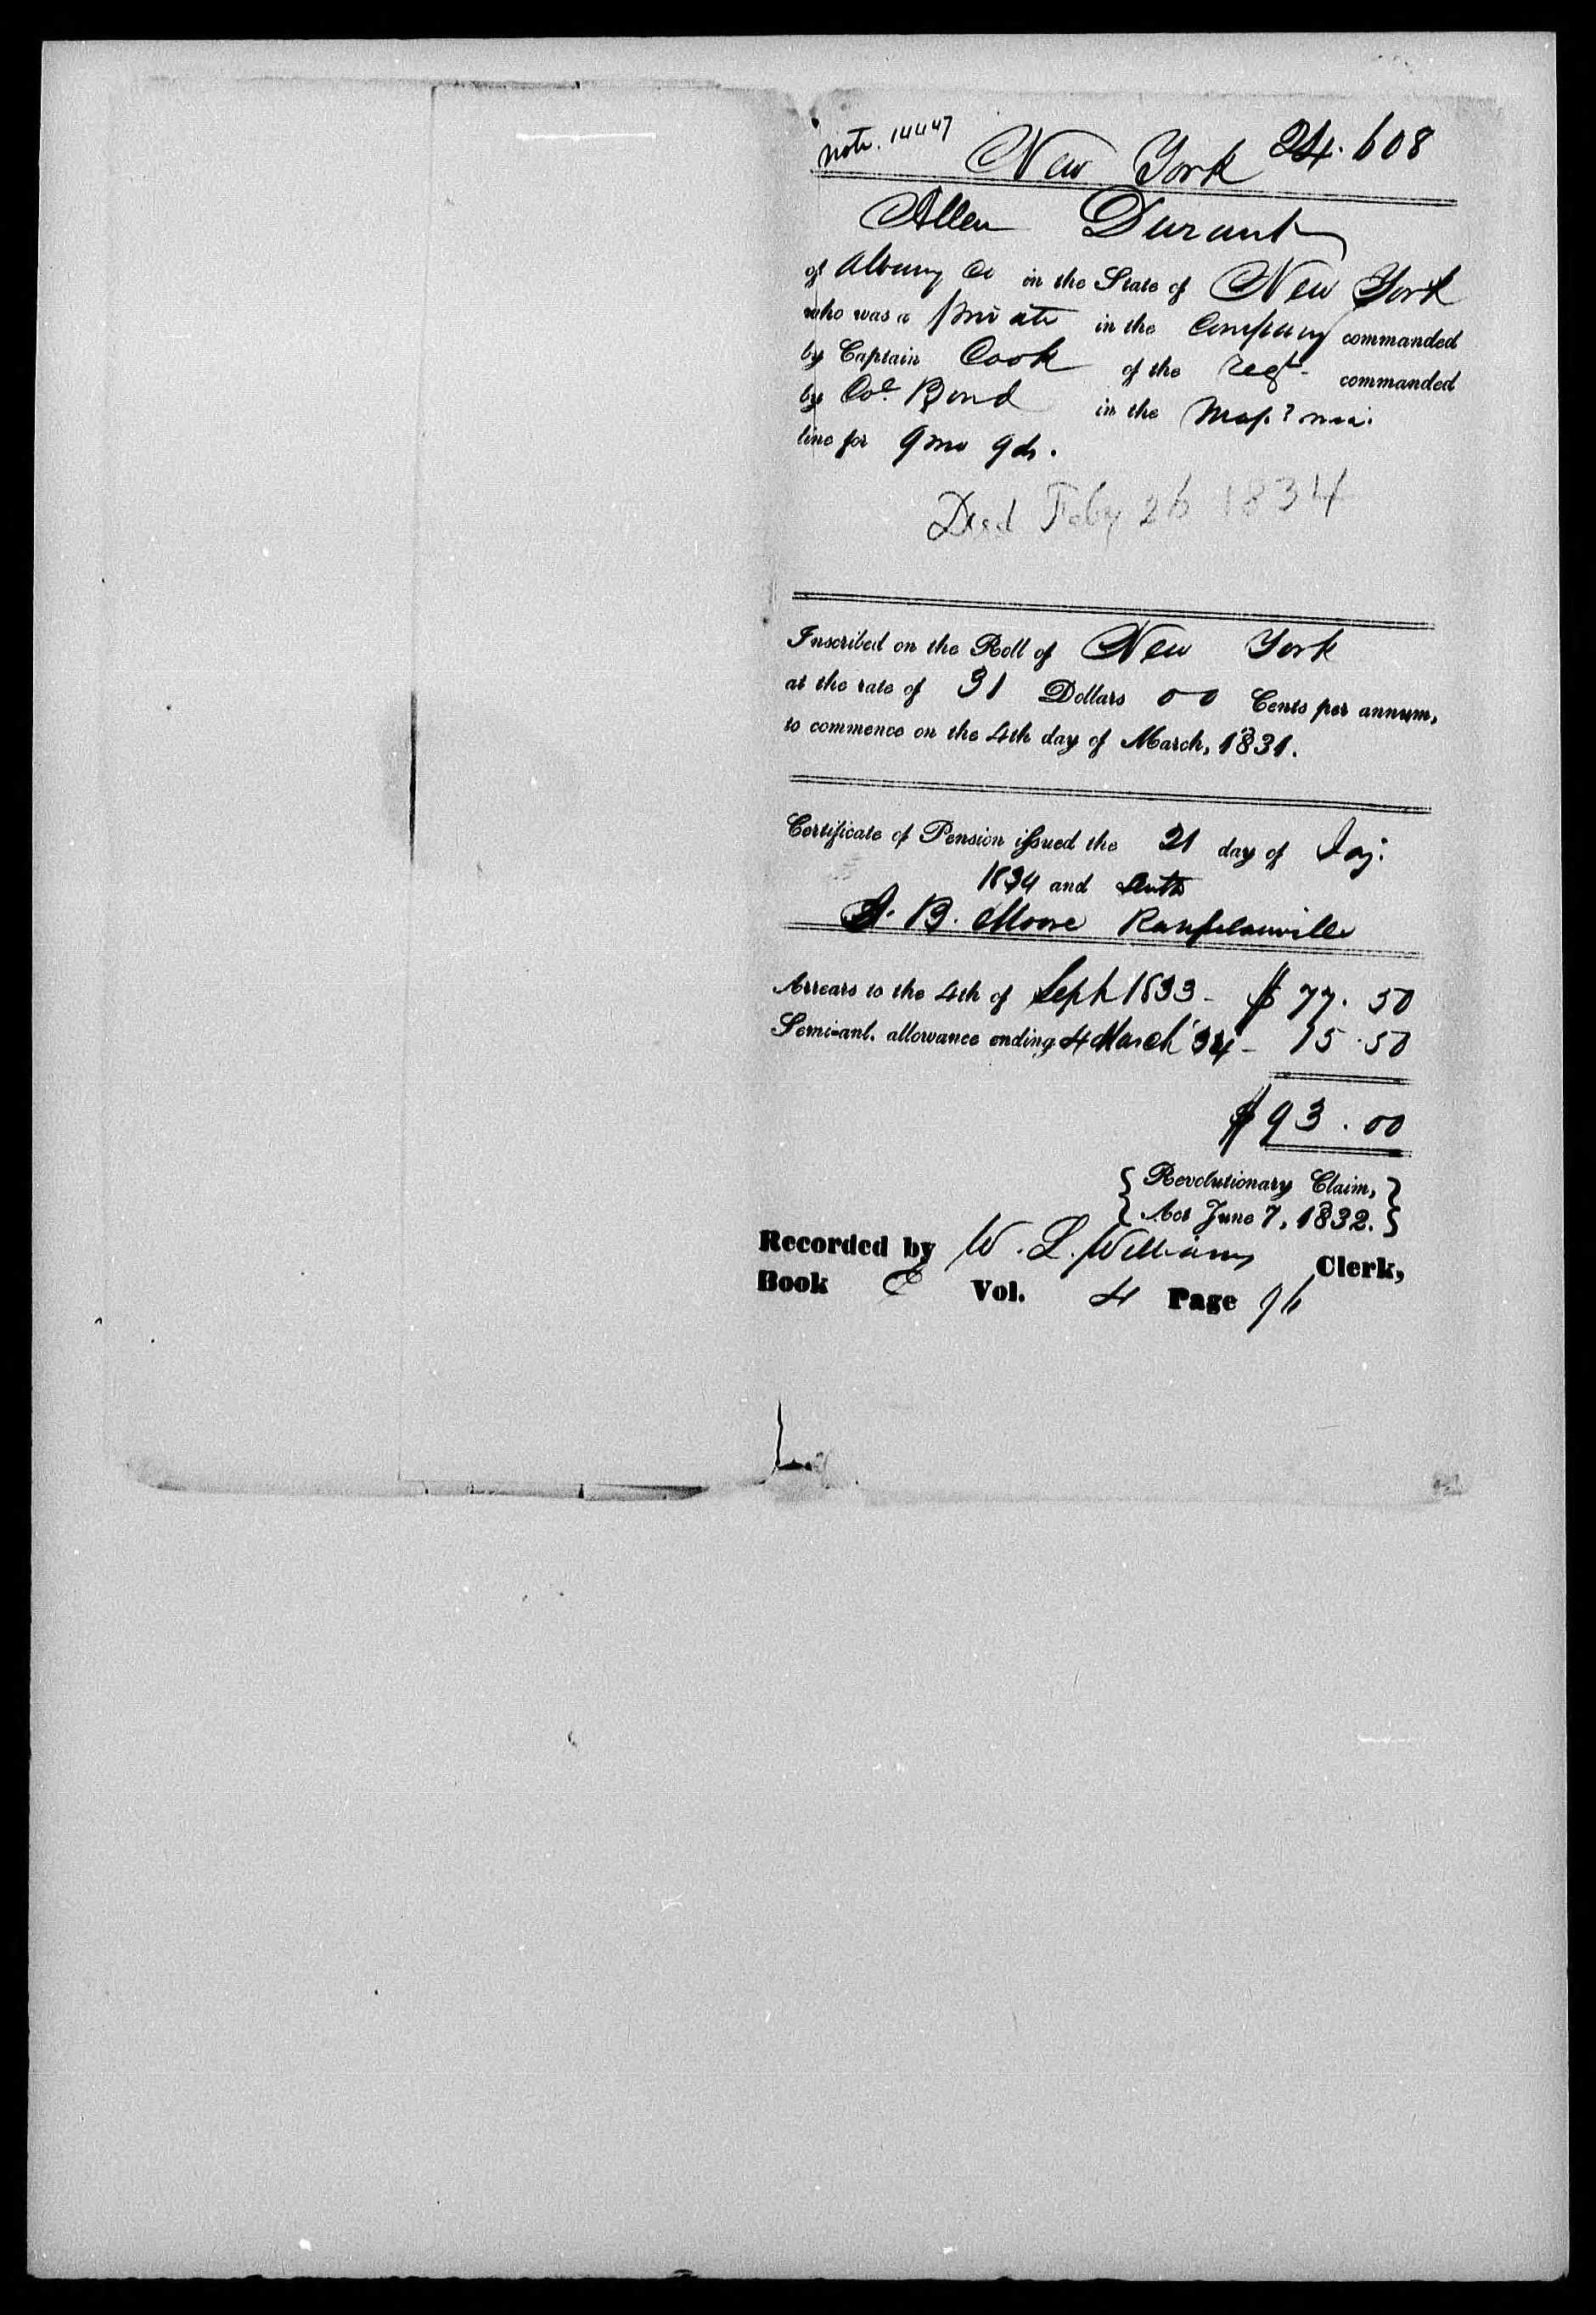 note. 14447
New York 24.608
Allen Durant
of Albany Co in the State of New York
who was a private in the Company commanded
by Captain Cook of the regt. commanded
by Col. Bond in the
line for 9 mo 9 ds.
Died Feby 26 1834
Inscribed on the Roll of New York
at the rate of 31 Dollars 00 Cents per annum,
to commence on the 4th day of March, 1831.
Certificate of Pension issued the 21 day of
1834 and
B. Moore
Arrears to the 4th of Sept 1833 - $ 77.50
Semi-anl. allowance ending 4 March '34 - 15.50
$ 93.00
{ Revolutionary Claim, }
{ Act June 7, 1832. }
Recorded by W. L. Williams Clerk,
Book Vol. 4 Page 96